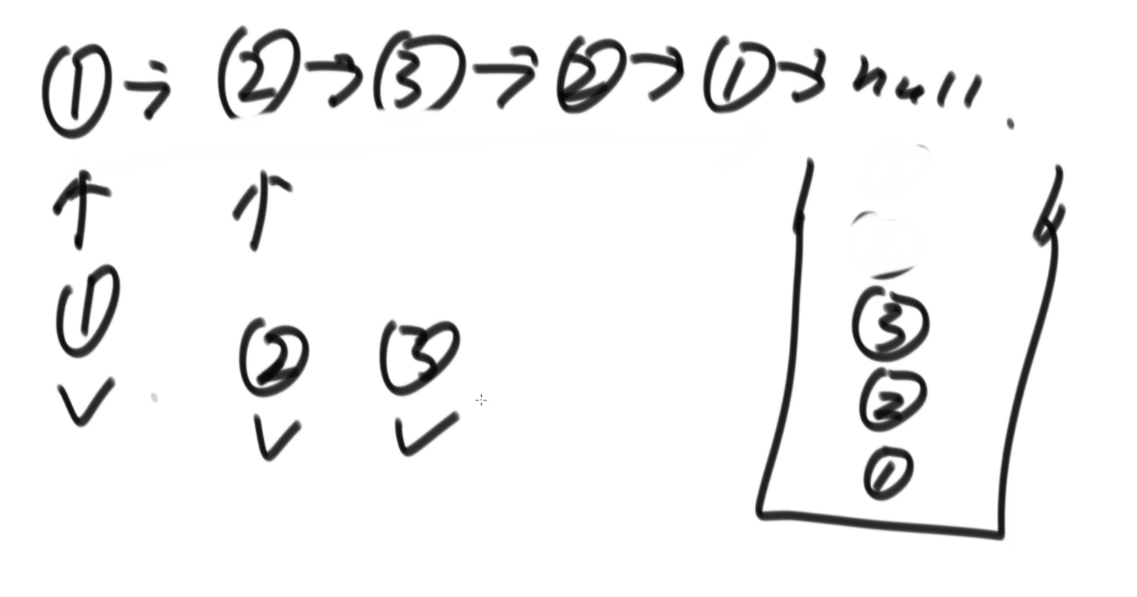 ① → ② → ③ → ② → ① → null.
↑ ↑
①
② ③
✓
✓ ✓
③
②
①